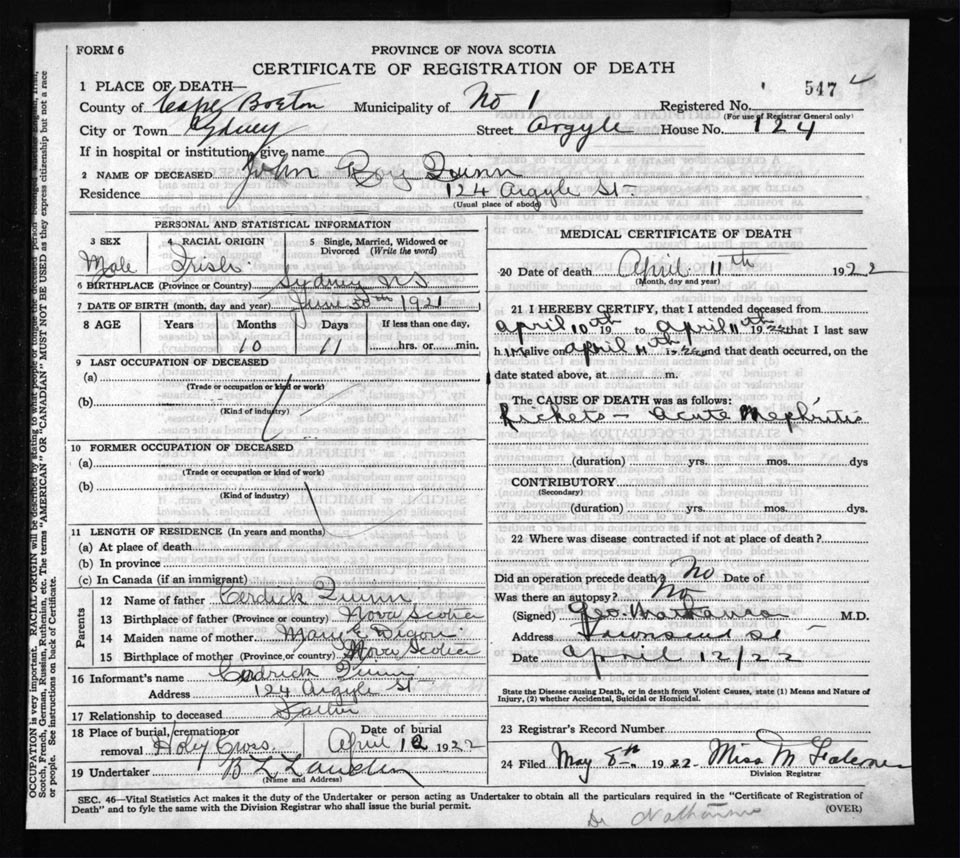 FORM 6
PROVINCE OF NOVA SCOTIA
CERTIFICATE OF REGISTRATION OF DEATH
1 PLACE OF DEATH—
547
County of Cape Breton Municipality of No 1 Registered No.
(For use of Registrar General only)
City or Town Sydney Street Argyle House No. 124
If in hospital or institution, give name
2 NAME OF DECEASED John Roy Quinn
Residence 124 Argyle St
(Usual place of abode)
PERSONAL AND STATISTICAL INFORMATION
3 SEX 4 RACIAL ORIGIN 5 Single, Married, Widowed or Divorced (Write the word)
Male Irish
6 BIRTHPLACE (Province or Country) Sydney NS
7 DATE OF BIRTH (month, day and year) June 30th 1921
8 AGE Years Months Days If less than one day,
10 11 hrs. or min.
9 LAST OCCUPATION OF DECEASED
(a)
(Trade or occupation or kind of work)
(b)
(Kind of industry)
10 FORMER OCCUPATION OF DECEASED
(a)
(Trade or occupation or kind of work)
(b)
(Kind of industry)
11 LENGTH OF RESIDENCE (In years and months)
(a) At place of death
(b) In province
(c) In Canada (if an immigrant)
Parents
12 Name of father Cerdick Quinn
13 Birthplace of father (Province or country) Nova Scotia
14 Maiden name of mother Mary E
15 Birthplace of mother (Province or country) Nova Scotia
16 Informant's name Cedrick Quinn
Address 124 Argyle St
17 Relationship to deceased Father
18 Place of burial, cremation or removal Holy Cross Date of burial April 12 1922
19 Undertaker B L
(Name and Address)
MEDICAL CERTIFICATE OF DEATH
20 Date of death April 11th 1922
(Month, day and year)
21 I HEREBY CERTIFY, that I attended deceased from
April 10th 19 to April 11th 1922 that I last saw
him alive on April 11th 1922 and that death occurred, on the
date stated above, at m.
The CAUSE OF DEATH was as follows:
Rickets — Acute Nephritis
(duration) yrs. mos. dys
CONTRIBUTORY
(Secondary)
(duration) yrs. mos. dys
22 Where was disease contracted if not at place of death?
Did an operation precede death? No Date of
Was there an autopsy? No
(Signed) Geo. M.D.
Address Townsend St
Date April 12/22
State the Disease causing Death, or in death from Violent Causes, state (1) Means and Nature of
Injury, (2) whether Accidental, Suicidal or Homicidal.
23 Registrar's Record Number
24 Filed May 8th 1922 Miss M
Division Registrar
SEC. 46—Vital Statistics Act makes it the duty of the Undertaker or person acting as Undertaker to obtain all the particulars required in the "Certificate of Registration of
Death" and to fyle the same with the Division Registrar who shall issue the burial permit. (OVER)
Dr
OCCUPATION is very important. RACIAL ORIGIN will be described by stating to what people or tongue the deceased person belongs,
Scotch, French, German, Russian, Ruthenian, etc. The terms "AMERICAN" OR "CANADIAN" MUST NOT BE USED as they express citizenship but not a race
or people. See instructions on back of Certificate.